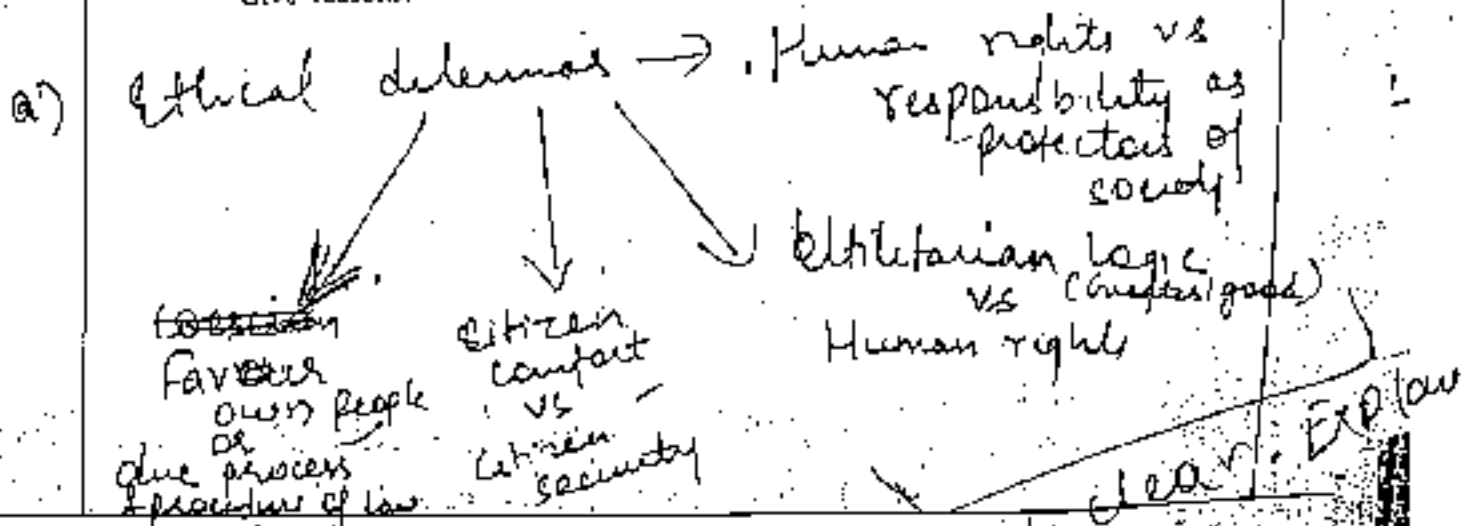 a)
Ethical dilemmas → Human rights vs
responsibility as
protectors of
society
Favour
own people
or
due process
& procedure of law
Citizen
comfort
vs
Citizen
security
Utilitarian Logic
vs (greatest good)
Human rights
clear. Explain